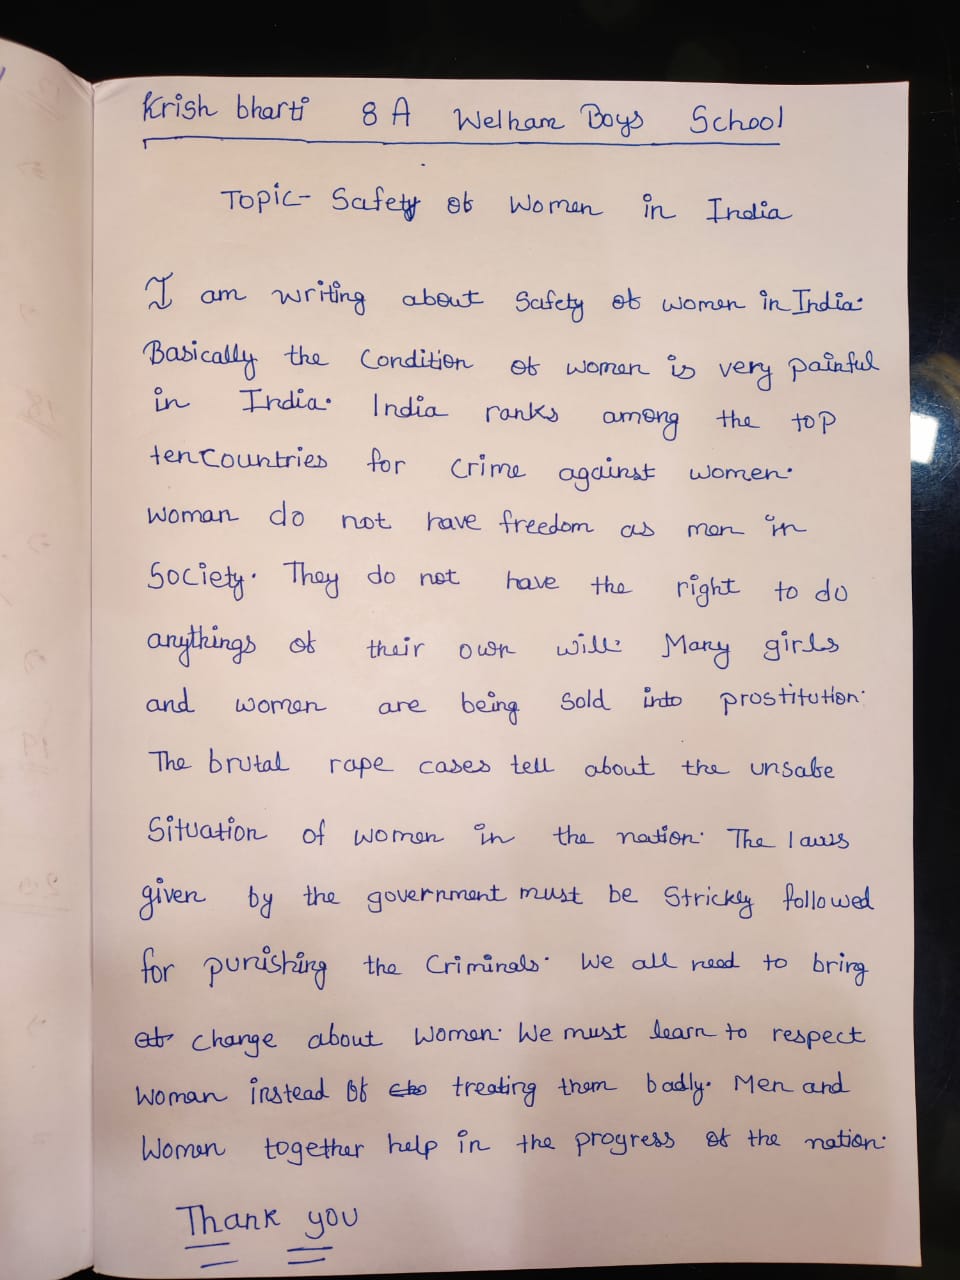 Krish bharti 8 A Welham Boys School
Topic- Safety of Women in India
I am writing about Safety of women in India.
Basically the Condition of women is very painful
in India. India ranks among the top
ten Countries for crime against women.
Woman do not have freedom as men in
Society. They do not have the right to do
anythings of their own will. Many girls
and women are being sold into prostitution.
The brutal rape cases tell about the unsafe
Situation of women in the nation. The laws
given by the government must be Strickly followed
for punishing the Criminals. We all need to bring
change about Women. We must learn to respect
Woman instead of treating them badly. Men and
Women together help in the progress of the nation.
Thank you